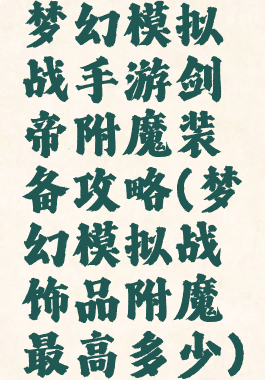 梦幻模拟
战手游剑
帝附魔装
备攻略(梦
幻模拟战
饰品附魔
最高多少)